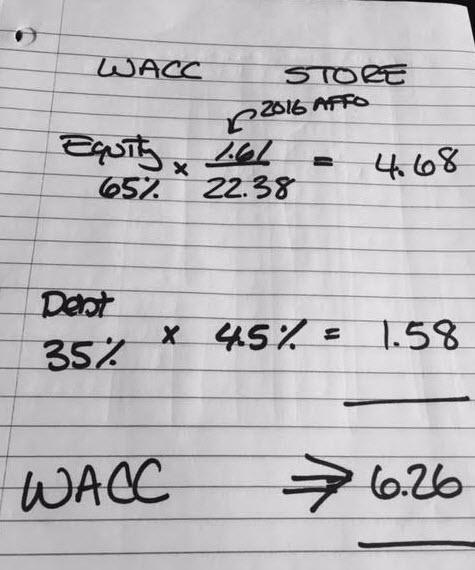 WACC STORE
2016 AFFO
Equity × 1.61 = 4.68
65% 22.38
Debt
35% × 4.5% = 1.58
WACC ⇒ 6.26